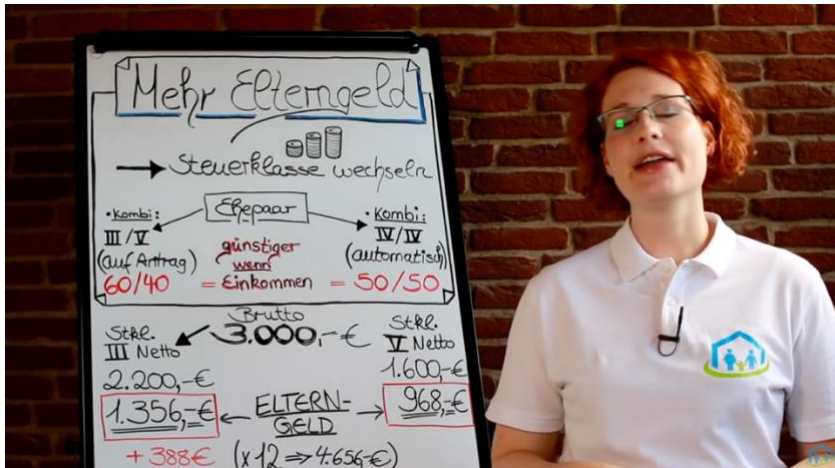 Mehr Elterngeld
→ Steuerklasse wechseln
Ehepaar
• Kombi:
III / V
(auf Antrag)
60/40
günstiger
wenn
= Einkommen =
• Kombi:
IV / IV
(automatisch)
50/50
Brutto
3.000,-€
Stkl.
III Netto
2.200,-€
1.356,-€
Stkl.
V Netto
1.600,-€
968,-€
← ELTERN- →
GELD
+ 388€ (x12 ⇒ 4.656,-€)